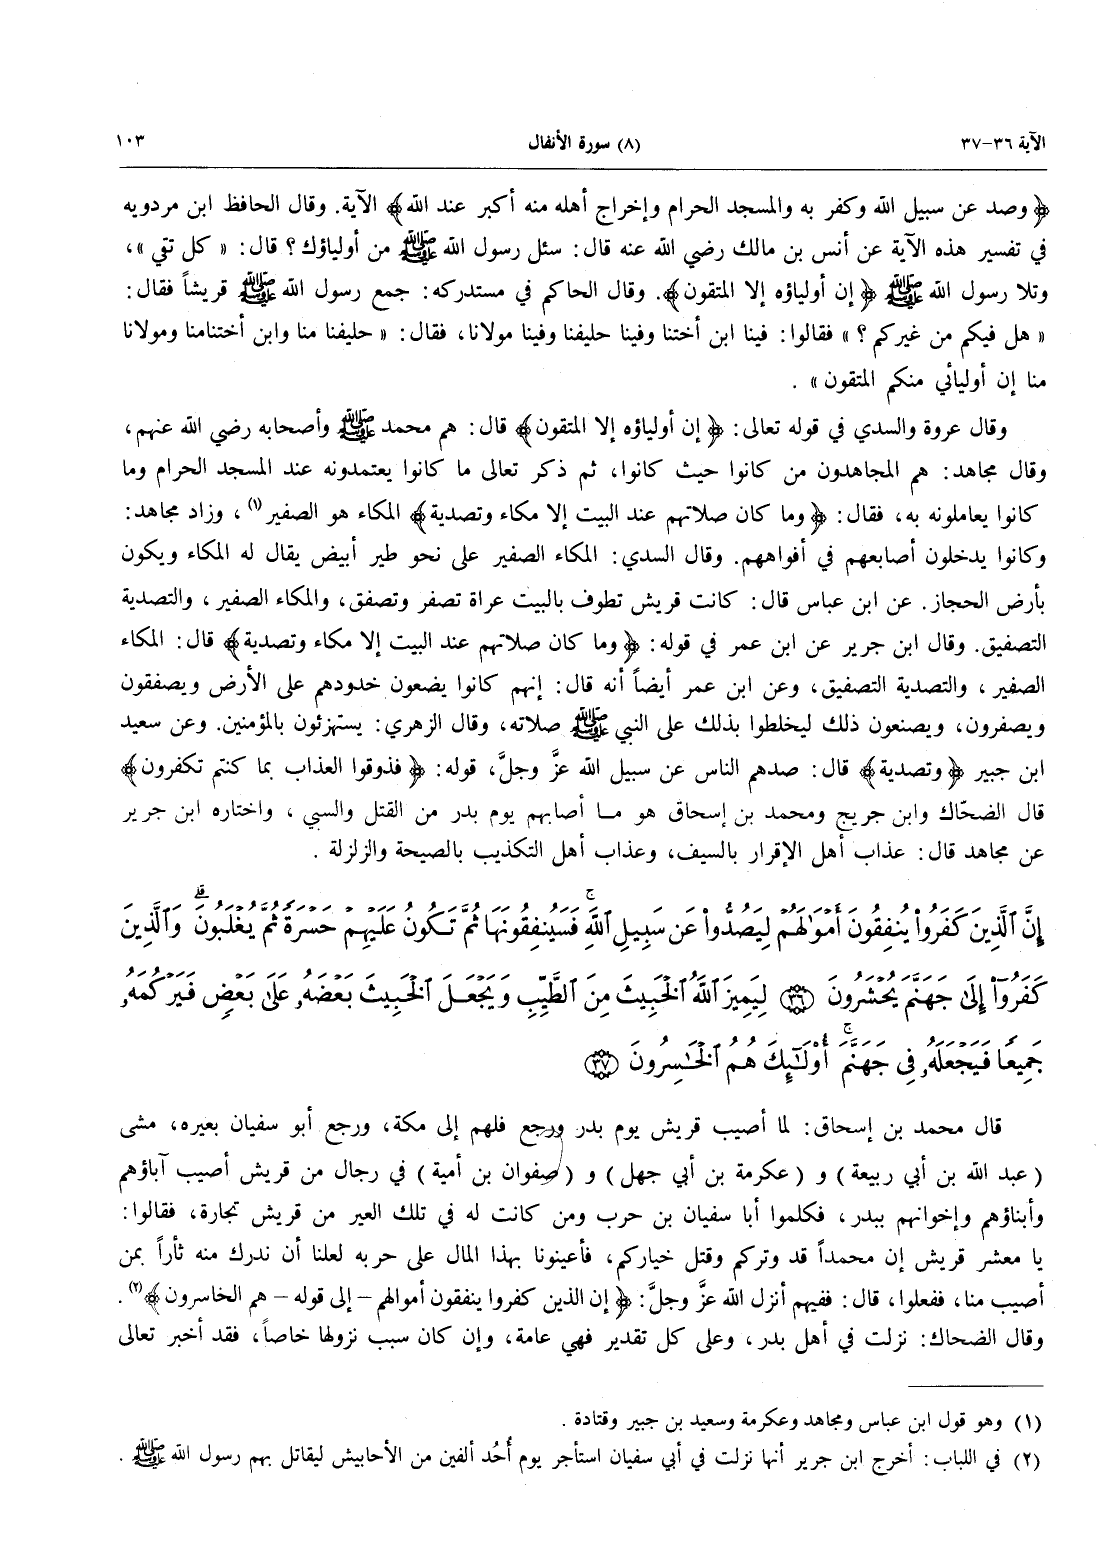 الآية ٣٦-٣٧ (٨) سورة الأنفال ١٠٣
﴿ وصد عن سبيل الله وكفر به والمسجد الحرام وإخراج أهله منه أكبر عند الله﴾ الآية. وقال الحافظ ابن مردويه
في تفسير هذه الآية عن أنس بن مالك رضي الله عنه قال: سئل رسول الله ﷺ من أولياؤك؟ قال: « كل تقي »،
وتلا رسول الله ﷺ ﴿ إن أولياؤه إلا المتقون﴾. وقال الحاكم في مستدركه: جمع رسول الله ﷺ قريشاً فقال:
« هل فيكم من غيركم ؟ » فقالوا: فينا ابن أختنا وفينا حليفنا وفينا مولانا، فقال: « حليفنا منا وابن أختنامنا ومولانا
منا إن أوليائي منكم المتقون» .
وقال عروة والسدي في قوله تعالى: ﴿ إن أولياؤه إلا المتقون﴾ قال: هم محمد ﷺ وأصحابه رضي الله عنهم،
وقال مجاهد: هم المجاهدون من كانوا حيث كانوا، ثم ذكر تعالى ما كانوا يعتمدونه عند المسجد الحرام وما
كانوا يعاملونه به، فقال: ﴿ وما كان صلاتهم عند البيت إلا مكاء وتصدية﴾ المكاء هو الصفير(١) ، وزاد مجاهد:
وكانوا يدخلون أصابعهم في أفواههم. وقال السدي: المكاء الصفير على نحو طير أبيض يقال له المكاء ويكون
بأرض الحجاز. عن ابن عباس قال: كانت قريش تطوف بالبيت عراة تصفر وتصفق، والمكاء الصفير ، والتصدية
التصفيق. وقال ابن جرير عن ابن عمر في قوله: ﴿ وما كان صلاتهم عند البيت إلا مكاء وتصدية﴾ قال: المكاء
الصفير ، والتصدية التصفيق، وعن ابن عمر أيضاً أنه قال: إنهم كانوا يضعون خدودهم على الأرض ويصفقون
ويصفرون، ويصنعون ذلك ليخلطوا بذلك على النبي ﷺ صلاته، وقال الزهري: يستهزئون بالمؤمنين. وعن سعيد
ابن جبير ﴿ وتصدية﴾ قال: صدهم الناس عن سبيل الله عزَّ وجلَّ، قوله: ﴿ فذوقوا العذاب بما كنتم تكفرون﴾
قال الضحّاك وابن جريج ومحمد بن إسحاق هو مـا أصابهم يوم بدر من القتل والسبي ، واختاره ابن جرير
عن مجاهد قال: عذاب أهل الإقرار بالسيف، وعذاب أهل التكذيب بالصيحة والزلزلة .
إِنَّ ٱلَّذِينَ كَفَرُواْ يُنفِقُونَ أَمْوَٰلَهُمْ لِيَصُدُّواْ عَن سَبِيلِ ٱللَّهِۚ فَسَيُنفِقُونَهَا ثُمَّ تَكُونُ عَلَيْهِمْ حَسْرَةً ثُمَّ يُغْلَبُونَۗ وَٱلَّذِينَ
كَفَرُوٓاْ إِلَىٰ جَهَنَّمَ يُحْشَرُونَ ﴿٣٦﴾ لِيَمِيزَ ٱللَّهُ ٱلْخَبِيثَ مِنَ ٱلطَّيِّبِ وَيَجْعَلَ ٱلْخَبِيثَ بَعْضَهُۥ عَلَىٰ بَعْضٍ فَيَرْكُمَهُۥ
جَمِيعًا فَيَجْعَلَهُۥ فِى جَهَنَّمَۚ أُوْلَٰٓئِكَ هُمُ ٱلْخَٰسِرُونَ ﴿٣٧﴾
قال محمد بن إسحاق: لما أصيب قريش يوم بدر ورجع فلهم إلى مكة، ورجع أبو سفيان بعيره، مشى
( عبد الله بن أبي ربيعة ) و ( عكرمة بن أبي جهل ) و ( صفوان بن أمية ) في رجال من قريش أصيب آباؤهم
وأبناؤهم وإخوانهم ببدر، فكلموا أبا سفيان بن حرب ومن كانت له في تلك العير من قريش تجارة، فقالوا:
يا معشر قريش إن محمداً قد وتركم وقتل خياركم، فأعينونا بهذا المال على حربه لعلنا أن ندرك منه ثأراً بمن
أصيب منا، ففعلوا، قال: ففيهم أنزل الله عزَّ وجلَّ: ﴿ إن الذين كفروا ينفقون أموالهم - إلى قوله - هم الخاسرون ﴾(٢) .
وقال الضحاك: نزلت في أهل بدر، وعلى كل تقدير فهي عامة، وإن كان سبب نزولها خاصاً، فقد أخبر تعالى
(١) وهو قول ابن عباس ومجاهد وعكرمة وسعيد بن جبير وقتادة .
(٢) في اللباب: أخرج ابن جرير أنها نزلت في أبي سفيان استأجر يوم أُحُد ألفين من الأحابيش ليقاتل بهم رسول الله ﷺ .